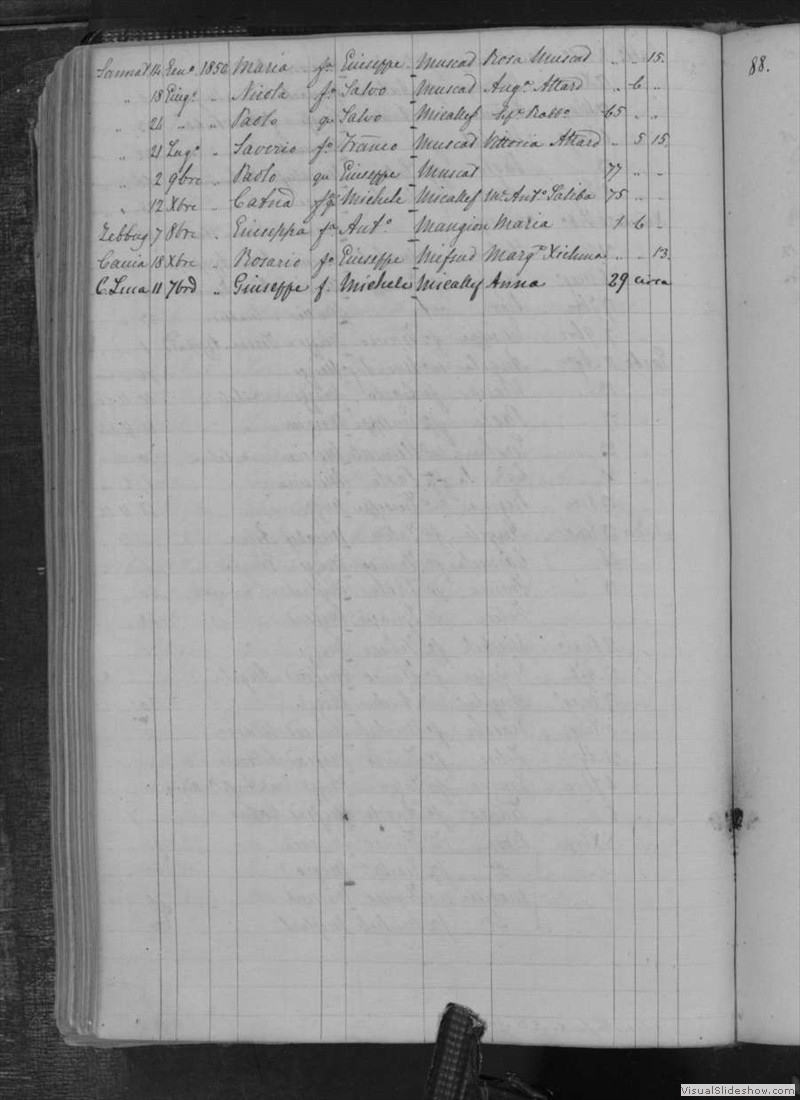 Sannat 14 Gen.o 1850 Maria f.a Giuseppe Muscad Rosa Muscad .. .. 15.
" 18 Giug.o " Nicola f.o Salvo Muscad Ang.a Attard .. 6 ..
" 24 " " Paolo qu Salvo Micallef 65 .. ..
" 21 Lug.o " Saverio f.o Franco Muscad Vittoria Attard .. 5 15
" 2 9bre " Paolo qu Giuseppe Muscat 77 .. ..
" 12 Xbre " Cat.na Michele Micallef M.a Ant.a Saliba 75 .. ..
Zebbug 7 8bre " Giuseppa f.a Ant.o Mangion Maria 1 6 ..
18 Xbre " Rosario f.o Giuseppe Mifsud Marg.ta .. .. 13
11 7bre " Giuseppe f. Michele Micallef Anna 29 circa
88.
VisualSlideshow.com